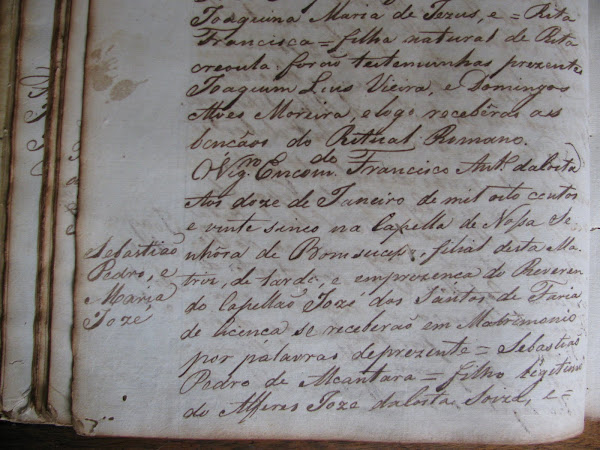 Joaquina Maria de Jezus, e = Rita
Francisca = filha natural de Rita
creoula forão testemunhas prezentes
Joaquim Luis Vieira, e Domingos
Alves Moreira, e logo receberão as
bençãos do Ritual Romano.
O Vigro. Encomdo. Francisco Anto. da Costa
Aos doze de Janeiro de mil oito centos
e vinte sinco na Capella de Nossa Se
nhora de Bomsucesso, filial desta Ma
triz, de tarde, e em prezença do Reveren
do Capellão Jozé dos Santos de Faria
de licença se receberão em Matrimonio
por palavras de prezente = Sebastião
Pedro de Alcantara = filho legitimo
do Alferes Joze da Costa e =
Sebastião
Pedro, e
Maria
Jozé